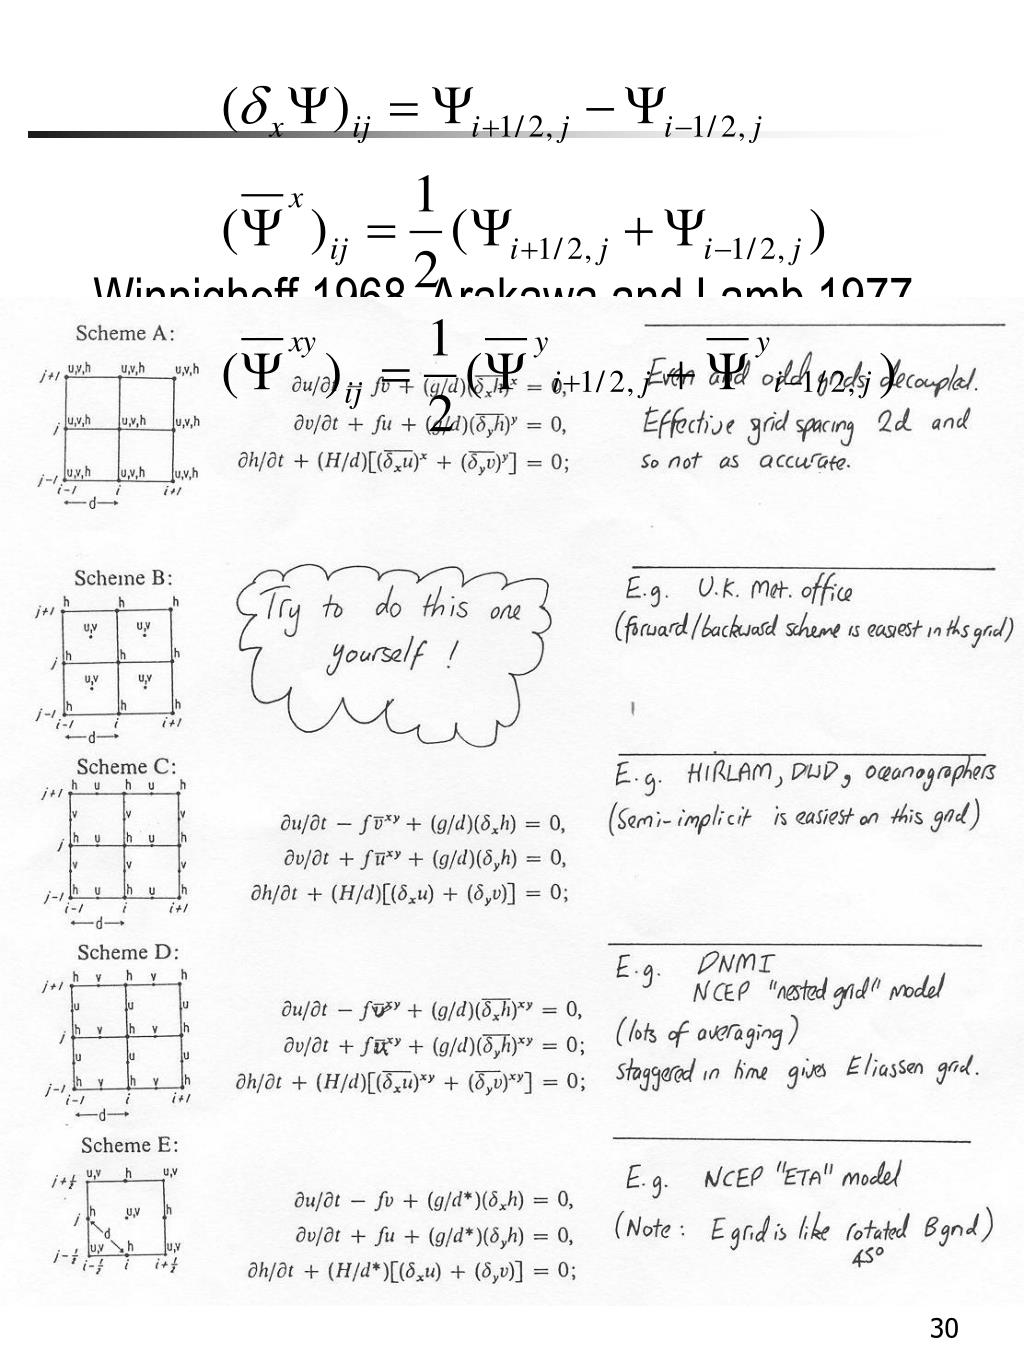 (δₓΨ)ᵢⱼ = Ψ_{i+1/2,j} − Ψ_{i−1/2,j}
(Ψ̅ˣ)ᵢⱼ = 1/2 (Ψ_{i+1/2,j} + Ψ_{i−1/2,j})
Winnighoff 1968, Arakawa and Lamb 1977
(Ψ̅ˣʸ)ᵢⱼ = 1/2 (Ψ̅ʸ_{i+1/2,j} + Ψ̅ʸ_{i−1/2,j})
Scheme A:
j+1 u,v,h u,v,h u,v,h
j u,v,h u,v,h u,v,h
j-1 u,v,h u,v,h u,v,h
i-1 i i+1
d
∂u/∂t − fv + (g/d)(δₓh)̅ˣ = 0,
∂v/∂t + fu + (g/d)(δᵧh)̅ʸ = 0,
∂h/∂t + (H/d)[(δₓu)̅ˣ + (δᵧv)̅ʸ] = 0;
Even and odd grids decoupled.
Effective grid spacing 2d and
so not as accurate.
Scheme B:
j+1 h h h
u,v u,v
j h h h
u,v u,v
j-1 h h h
i-1 i i+1
d
Try to do this one
yourself !
E.g. U.K. Met. office
(forward/backward scheme is easiest in this grid)
Scheme C:
j+1 h u h u h
v v v
j h u h u h
v v v
j-1 h u h u h
i-1 i i+1
d
∂u/∂t − fv̅ˣʸ + (g/d)(δₓh) = 0,
∂v/∂t + fu̅ˣʸ + (g/d)(δᵧh) = 0,
∂h/∂t + (H/d)[(δₓu) + (δᵧv)] = 0;
E.g. HIRLAM, DWD, oceanographers
(Semi-implicit is easiest on this grid)
Scheme D:
j+1 h v h v h
u u u
j h v h v h
u u u
j-1 h v h v h
i-1 i i+1
d
∂u/∂t − fv̅ˣʸ + (g/d)(δₓh)̅ˣʸ = 0,
∂v/∂t + fu̅ˣʸ + (g/d)(δᵧh)̅ˣʸ = 0;
∂h/∂t + (H/d)[(δₓu)̅ˣʸ + (δᵧv)̅ˣʸ] = 0;
E.g. DNMI
NCEP "nested grid" model
(lots of averaging)
staggered in time gives Eliassen grid.
Scheme E:
j+½ u,v h u,v
j h u,v h
d
j-½ u,v h u,v
i-½ i i+½
∂u/∂t − fv + (g/d*)(δₓh) = 0,
∂v/∂t + fu + (g/d*)(δᵧh) = 0,
∂h/∂t + (H/d*)[(δₓu) + (δᵧv)] = 0;
E.g. NCEP "ETA" model
(Note: E grid is like rotated B grid)
45°
30